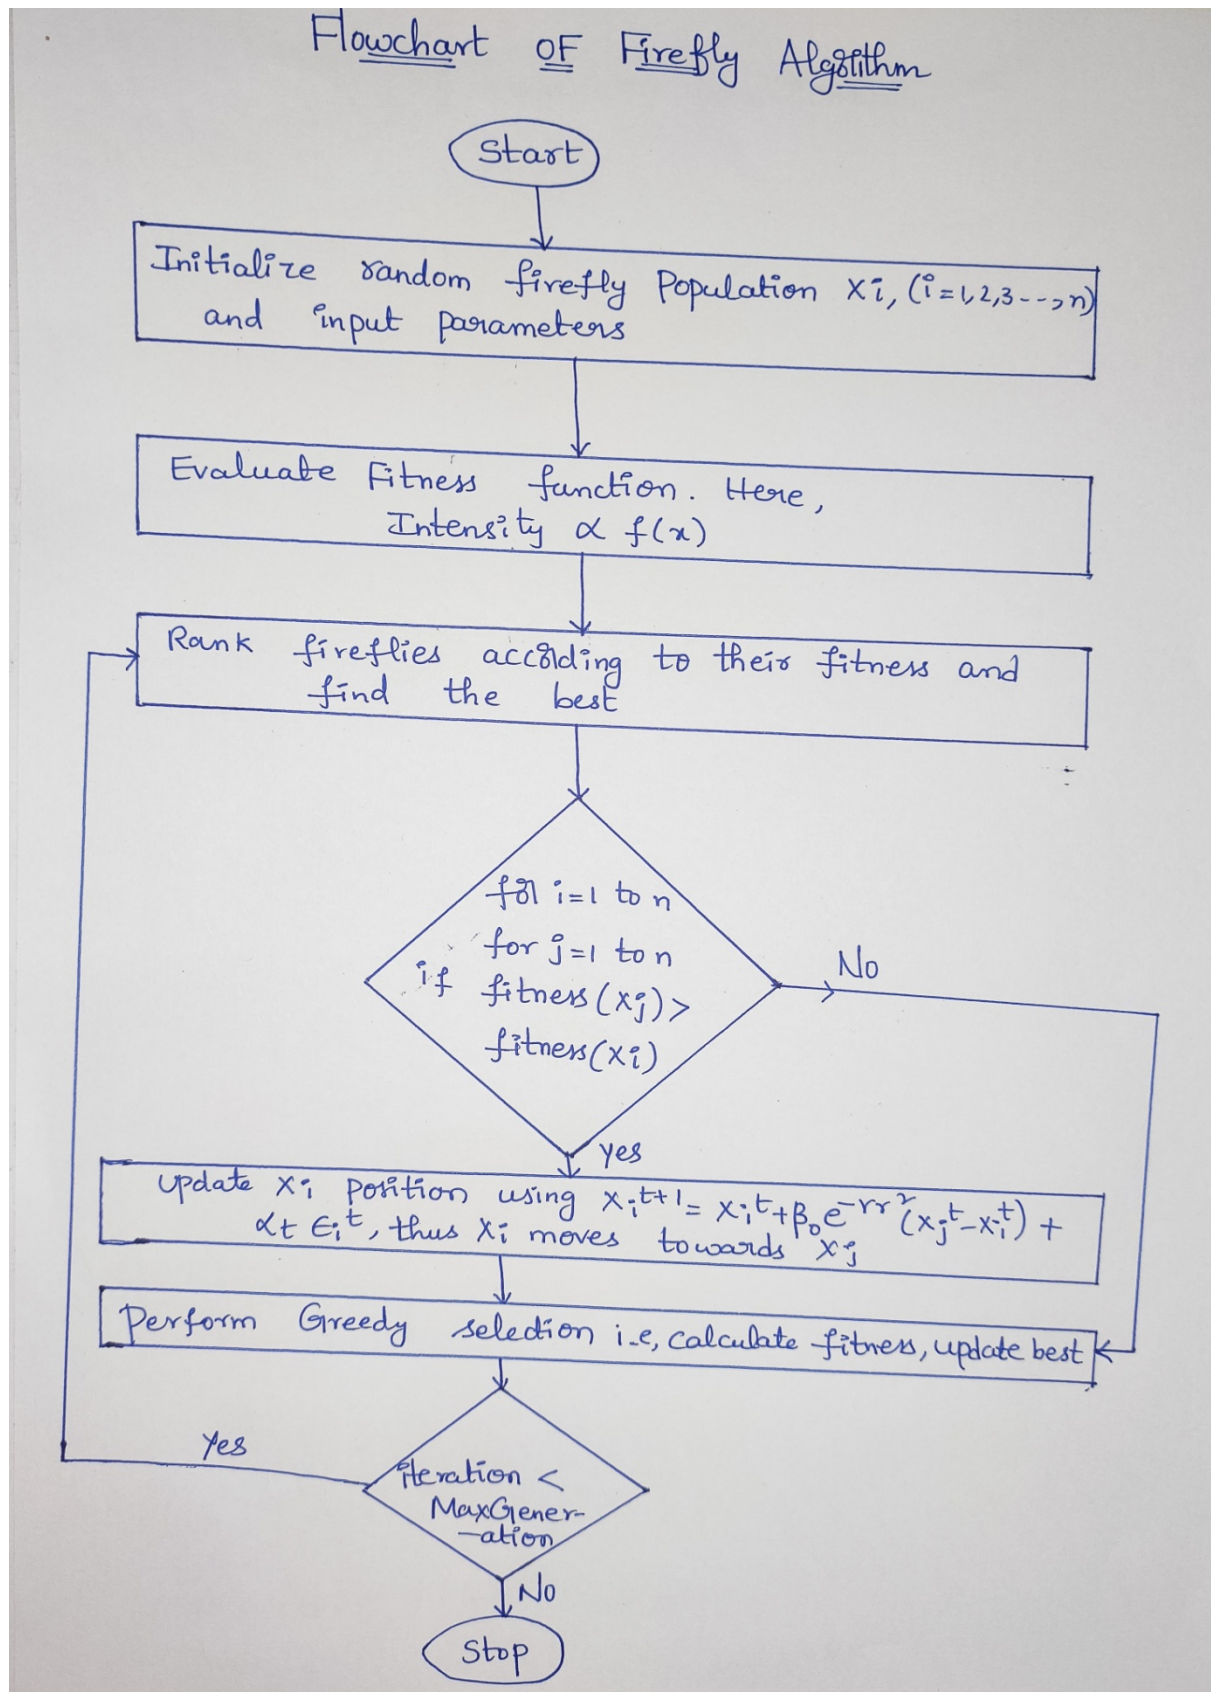 Flowchart OF Firefly Algorithm
Start
Initialize random firefly Population Xi, (i=1,2,3--,n)
and input parameters
Evaluate Fitness function. Here,
Intensity ∝ f(x)
Rank fireflies according to their fitness and
find the best
for i=1 to n
for j=1 to n
if fitness(xj)>
fitness(xi)
No
yes
update xi position using xi^t+1 = xi^t+β₀e^-rr²(xj^t-xi^t) +
αt ∈i^t, thus xi moves towards xj
Perform Greedy selection i.e, calculate fitness, update best
Yes
iteration <
MaxGener-
-ation
No
Stop